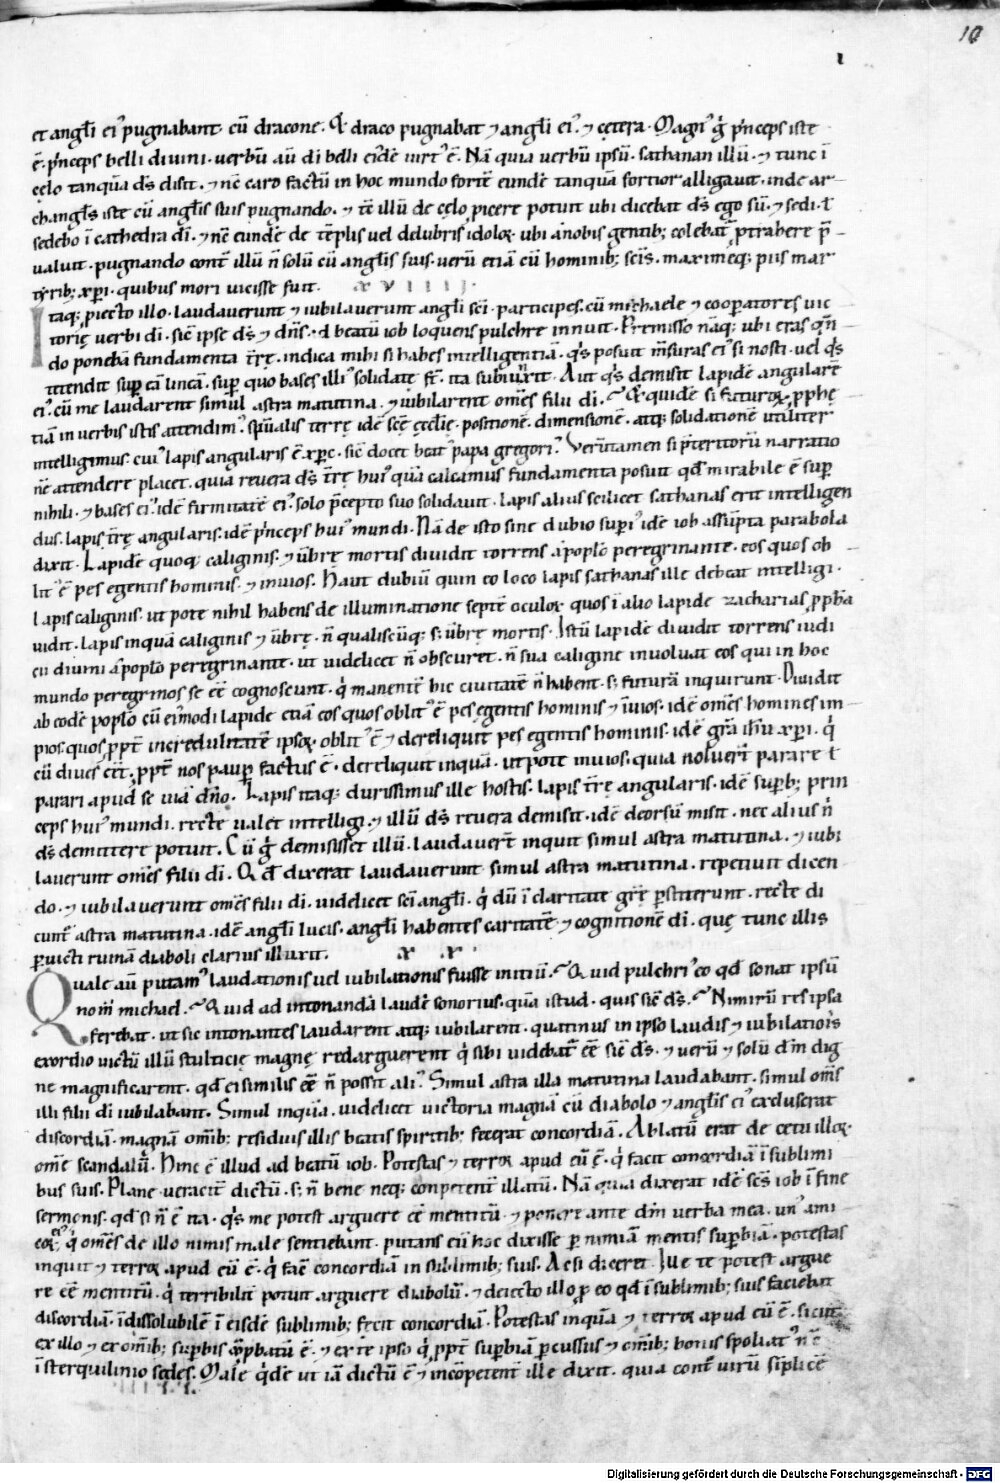 10
et angl̄i ei⁹ pugnabant cū dracone. Et draco pugnabat ⁊ angl̄i ei⁹. ⁊ cętera. Magn⁹ g̊ p̍nceps iste
ē. p̍nceps belli diuini. uerbū aū dī belli ei⁹dē uirt⁹ ē. Nā quia uerbū ipsū. sathanan illū. ⁊ tunc ī
cęlo tanquā dš disit. ⁊ nc̄ caro factū in hoc mundo fortē eundē tanquā fortior alligauit. inde ar
changl̄s iste cū angl̄is suis pugnando. ⁊ tē illū de cęlo p̍icere potuit ubi dicebat dš ego sū. ⁊ sedi. ł
sedebo ī cathedra dī. ⁊ nc̄ eundē de tēplis uel delubris idoloꝝ. ubi a nobis gentib; colebat̄ ꝑtrahere p̄
ualuit. pugnando cont̄ illū n̄ solū cū angl̄is suis. uerū etiā cū hominib; scīs. maximeq; piis mar
tyrib; xp̄i. quibus mori uicisse fuit. x v i i i i.
Itaq; p̍iecto illo. laudauerunt ⁊ iubilauerunt angl̄i scī. participes. cū michaele ⁊ coop̱atores uic
torię uerbi dī. sic̄ ipse dš ⁊ dn̄s. ad beatū iob loquens pulchre innuit. Premisso nāq; ubi eras qn̄
do ponebā fundamenta t̄rę. indica mihi si habes intelligentiā. q̍s posuit m̄suras ei⁹ si nosti. uel q̍s
tetendit suꝑ eā lineā. suꝑ quo bases illi⁹ solidatę st̄. ita subiunxit. Aut q̍s demisit lapidē angularē
ei⁹. cū me laudarent simul astra matutina. ⁊ iubilarent om̄es filii dī. Et quidē si futuroꝝ. ꝓphę
tiā in uerbis istis attendim⁹. sp̄ualis terrę idē scę̄ ęccl̄ię. positionē. dimensionē. atq; solidationē utiliter
intelligimus. cui⁹ lapis angularis ē xp̄c. sic̄ docet beat⁹ papa gregori⁹. Veru̅tamen si p̄teritorū narratio
nē attendere placet. quia reuera dš t̄rę hui⁹ quā calcamus fundamenta posuit qd̄ mirabile ē suꝑ
nihili. ⁊ bases ei⁹. idē firmitatē ei⁹. solo p̄cepto suo solidauit. lapis alius scilicet sathanas erit intelligen
dus. lapis t̄rę angularis. idē p̍nceps hui⁹ mundi. Nā de isto sine dubio suꝑi⁹ idē iob assūpta parabola
dixit. Lapidē quoq; caliginis. ⁊ ūbrę mortis diuidit torrens a pop̄lo peregrinante. eos quos ob
lit⁹ ē pes egentis hominis. ⁊ inuios. Haut dubiū quin eo loco lapis sathanas ille debeat intelligi.
Lapis caliginis. ut pote nihil habens de illuminatione septē oculoꝝ quos ī alio lapide zacharias ꝓph̄a
uidit. lapis inquā caliginis ⁊ ūbrę. n̄ qualiscūq; s; ūbrę mortis. Istū lapidē diuidit torrens iudi
cii diuini a pop̄lo peregrinante. ut uidelicet n̄ obscuret. n̄ sua caligine inuoluat eos qui in hoc
mundo peregrinos se eē cognoscunt. q̍ manentē hic ciuitatē n̄ habent. s; futurā inquirunt. Diuidit
ab eodē pop̄lo cū ei⁹modi lapide etiā eos quos oblit⁹ ē pes egentis hominis ⁊ īuios. idē om̄es homines im
pios. quos ꝓpt̄ incredulitatē ipsoꝝ. oblit⁹ ē ⁊ dereliquit pes egentis hominis. idē gr̄a ih̄u xp̄i. q̍
cū diues eēt. ꝓpt̄ nos pauꝑ factus ē. dereliquit inquā. ut pote inuios. quia noluer̄t parare ł
parari apud se uiā dn̄o. Lapis itaq; durissimus ille hostis. lapis t̄rę angularis. idē suꝑb; prin
ceps hui⁹ mundi. recte ualet intelligi. ⁊ illū dš reuera demisit. idē deorsū misit. nec alius n̍
dš demittere potuit. Cū g̊ demisisset illū. laudauer̄t inquit simul astra matutina. ⁊ iubi
lauerunt om̄es filii dī. Qd̄ dixerat laudauerunt simul astra matutina. repetiuit dicen
do. ⁊ iubilauerunt om̄es filii dī. uidelicet scī angl̄i. q̍ dū ī claritate gr̄ę ꝑstiterunt. recte di
cunt̄ astra matutina. idē angl̄i lucis. angl̄i habentes caritatē ⁊ cognitionē dī. quę tunc illis
ꝑ uicti ruinā diaboli clarius illuxit. x x.
Quale aū putam⁹ laudationis uel iubilationis fuisse initiū. Quid pulchri⁹ eo qd̄ sonat ipsū
nom̄ michael. Quid ad intonandā laudē sonorius. quā istud. quis sic̄ dš. Nimirū res ipsa
ferebat. ut sic intonantes laudarent atq; iubilarent. quatinus in ipso laudis ⁊ iubilatiōis
exordio uictū illū stulticię magnę redarguerent q̍ sibi uidebat̄ eē sic̄ dš. ⁊ uerū ⁊ solū dm̄ dig
ne magnificarent. qd̄ ei similis eē n̄ possit ali⁹. Simul astra illa matutina laudabant. simul om̄s
illi filii dī iubilabant. Simul inquā. uidelicet uictoria magnā cū diabolo ⁊ angl̄is ei⁹ excluserat
discordiā. magnā om̄ib; residuis illis beatis spiritib; fecerat concordiā. Ablatū erat de cetu illoꝝ
om̄e scandalū. Hinc ē illud ad beatū iob. Potestas ⁊ terror apud eū ē. q̍ facit concordiā ī sublimi
bus suis. Plane ueracit̄ dictū. s; n̄ bene neq; conpetent̄ illatū. Nā quia dixerat idē scs̄ iob ī fine
sermonis. qd̄ si n̄ ē ita. q̍s me potest arguere eē mentitū. ⁊ ponere ante dm̄ uerba mea. un⁹ ami
coꝝ ei⁹ q̍ om̄es de illo nimis male sentiebant. putans eū hoc dixisse ꝑ nimiā mentis suꝑbiā. potestas
inquit ⁊ terror apud eū ē. q̍ fac̄ concordiā in sublimib; suis. Ac si diceret. Ille te potest argue
re eē mentitū. q̍ terribilit̄ potuit arguere diabolū. ⁊ deiecto illo ꝓ eo qd̄ ī sublimib; suis faciebat
discordiā. īdissolubilē ī eisdē sublimib; fecit concordiā. Potestas inquā ⁊ terror apud eū ē. sicut
ex illo ⁊ ex om̄ib; suꝑbis cōꝓbatū ē. ⁊ ex te ipso q̍ ꝓpt̄ suꝑbiā ꝑcussus ⁊ om̄ib; bonis spoliat⁹ nc̄
ī sterquilinio sedes. Male q̍dē ut iā dictū ē ⁊ incōpetent̄ ille dixit. quia cont̄ uirū siplicē
Digitalisierung gefördert durch die Deutsche Forschungsgemeinschaft - DFG